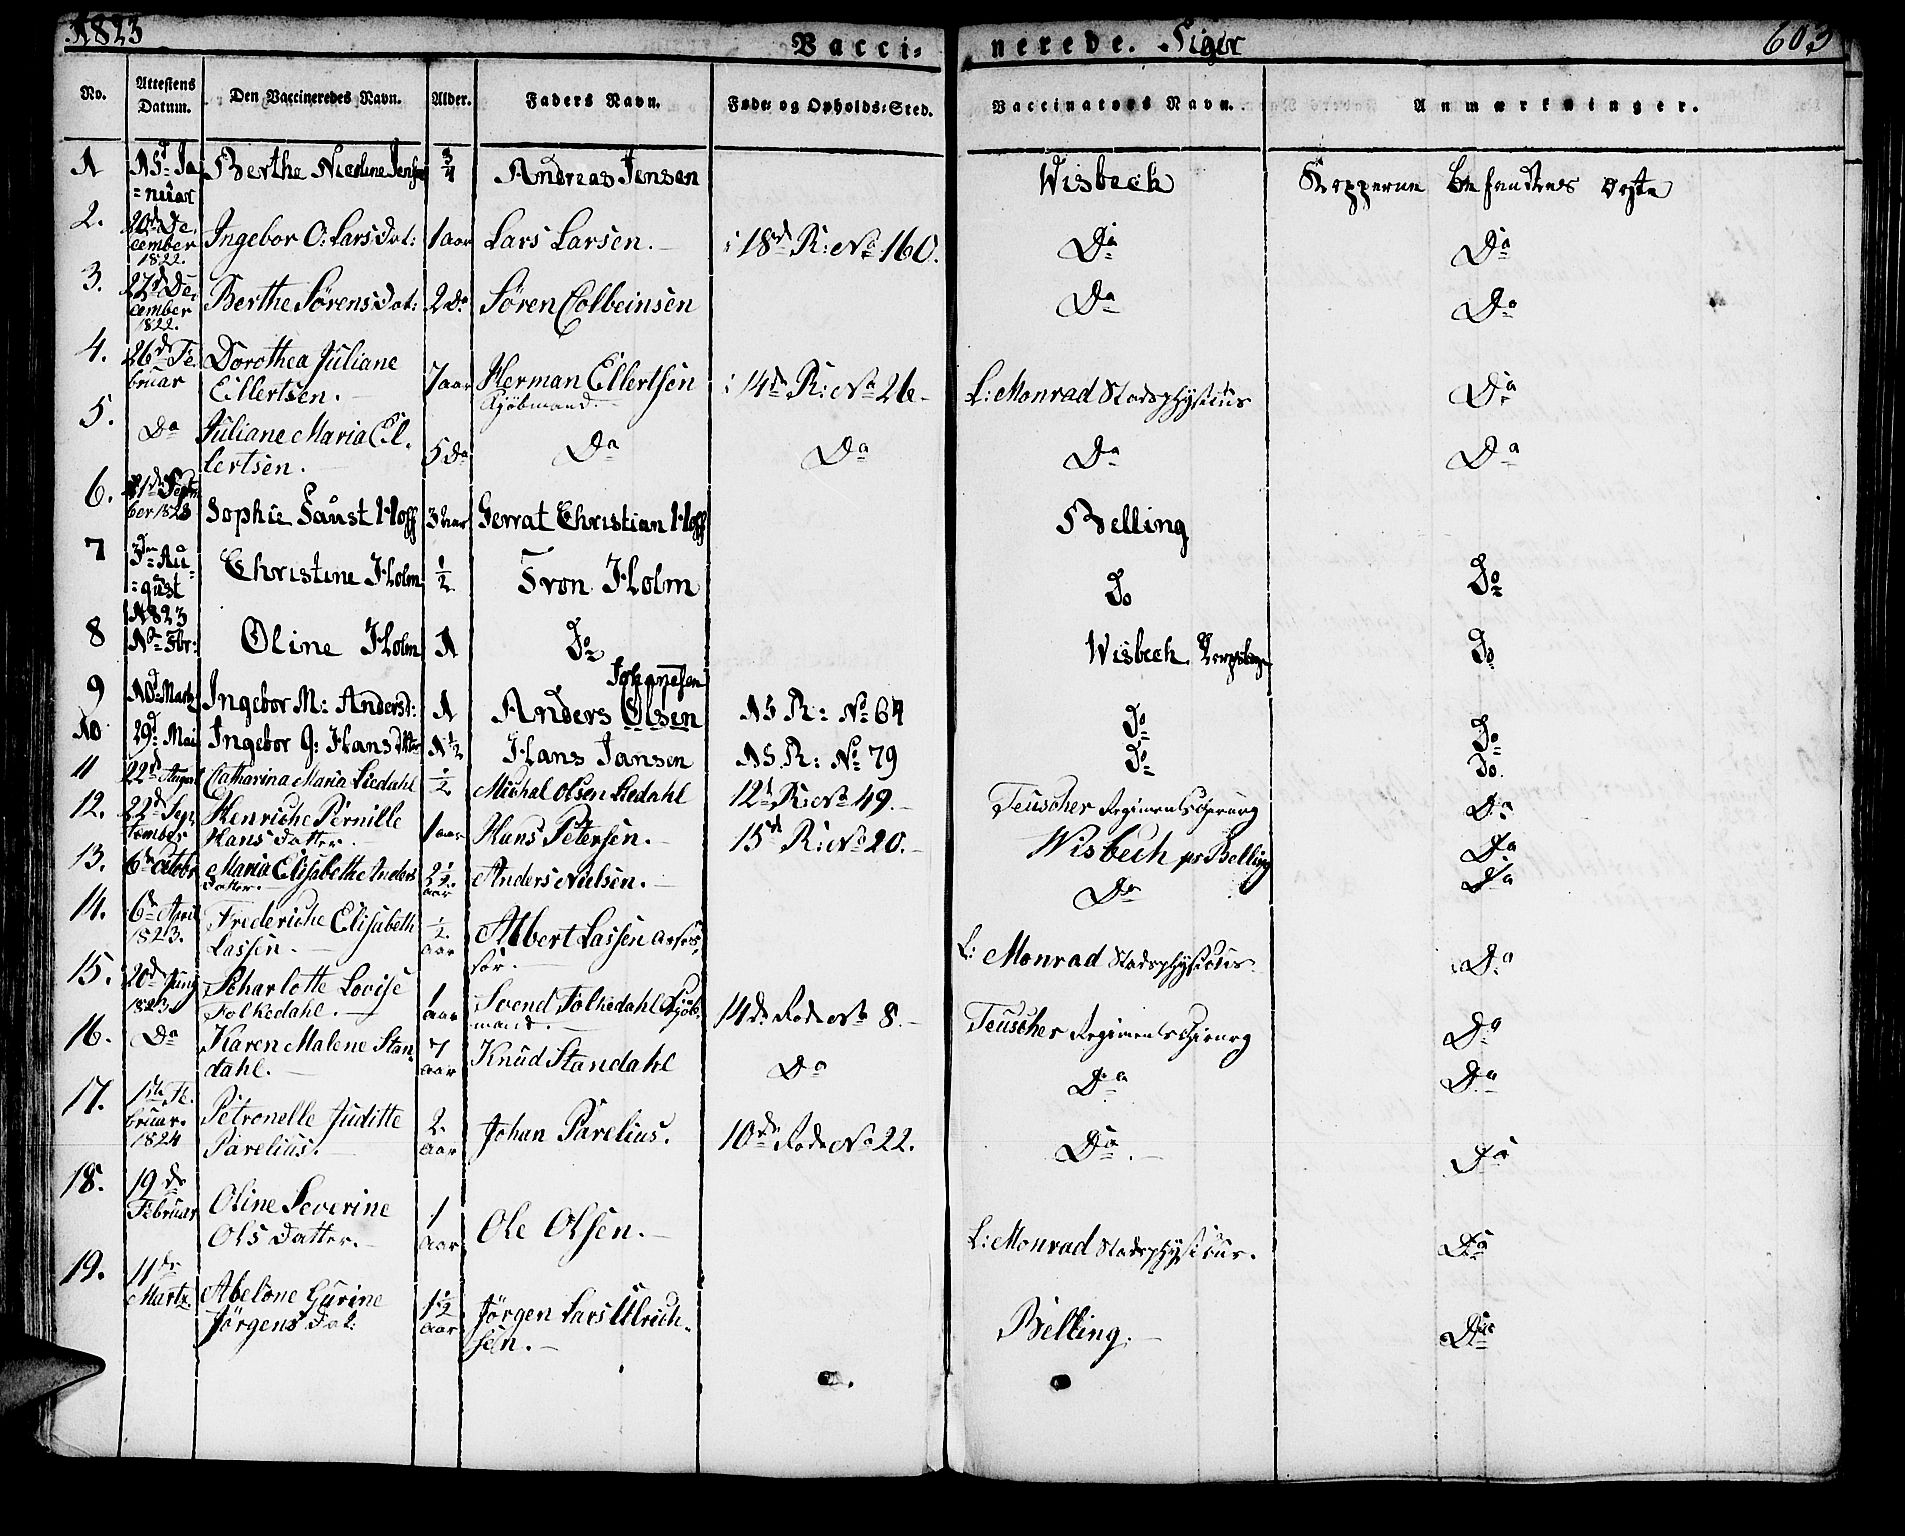 1823 Vacci: nerede. Piger 603
No. Attestens Datum. Den Vaccineredes Navn. Alder. Faders Navn. Føde og Opholds-Sted. Vaccinateurs Navn. Anmærkninger.
1 15d Ja=nuar Berthe Nicoline Jensen 3/4 Andreas Jensen Wisbech Kopperne befandtes ægte
2. 20de December 1822. Ingebor O: Larsdat: 1 aar Lars Larsen. i 18d R: No 160. Do Do
3. 27de December 1822. Berthe Sørensdat: 2 Do Søren Colbeinsen Do Do
4. 26de Februar Dorothea Juliane Ellertsen. 7 aar Herman Ellertsen Kjøbmand. i 14de R: No 26. L: Monrad Stadsphysicus Do
5. Do Juliane Maria Ellertsen. 5 Do Do Do Do Do
6. 21de Septmber 1823 Sophie Faust Hoff 3 aar Gerrat Christian Hoff Belling
7 3die Au=gust Christine Holm 1/2 Iron Holm Do Do
8 1823 Fbr: Oline Holm 1 Do Wisbech Do
9 10d Martz Ingebor M: Andersd: 1 Anders Olsen Johannesen 15 R: No 64 Do Do
10 29d Mai Ingebor G: Hansdtter 1 1/2 Hans Jansen 15 R: No 79 Do Do
11 22d August Catharina Maria Liedahl 1/2 Michal Olsen Liedahl 12d R: No 49. Teuscher Regimentschirurg Do.
12. 22de September Henriche Pernille Hansdatter. 1 aar Hans Petersen. 15d R: No 20. Wisbech pr Belling Do
13. 6te Octobr Maria Elisabethe Andersdatter. 2 1/2 aar Anders Nielsen. Do Do
14. 6te April 1823. Frederiche Elisabeth Lassen. 1/2 aar Albert Lassen Assessor. L: Monrad Stadsphysicus. Do
15. 20d Juny 1823 Scharlotte Lovise Folkedahl. 1 aar Svend Folkedahl Kjøbmand. 14de Rode No 8. Teuscher Regimentschirurg Do
16. Do Karen Malene Standahl. 7 aar Knud Standahl Do Do Do
17. 1ste Februar. 1824 Petronelle Juditte Parelius. 2 aar Johan Parelius. 10de Rode No 22. Do. Do
18. 19de Februar Oline Severine Olsdatter. 1 aar Ole Olsen. L: Monrad Stadsphysicus. Do
19. 11de Martz. Abelone Gurine Jørgensdat: 1 1/2 aar Jørgen Lars Ulrichsen. Belling. Do